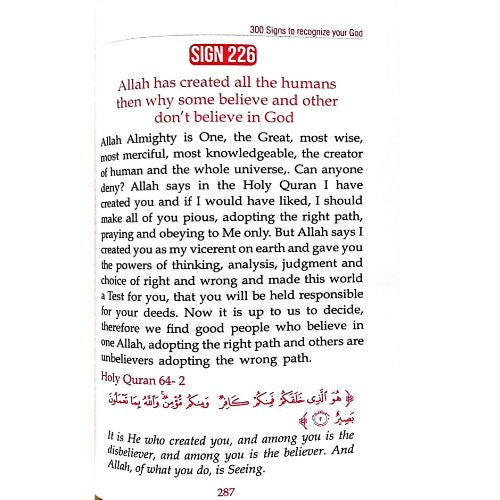 300 Signs to recognize your God
SIGN 226
Allah has created all the humans
then why some believe and other
don't believe in God
Allah Almighty is One, the Great, most wise,
most merciful, most knowledgeable, the creator
of human and the whole universe,. Can anyone
deny? Allah says in the Holy Quran I have
created you and if I would have liked, I should
make all of you pious, adopting the right path,
praying and obeying to Me only. But Allah says I
created you as my vicerent on earth and gave you
the powers of thinking, analysis, judgment and
choice of right and wrong and made this world
a Test for you, that you will be held responsible
for your deeds. Now it is up to us to decide,
therefore we find good people who believe in
one Allah, adopting the right path and others are
unbelievers adopting the wrong path.
Holy Quran 64- 2
﴿ هُوَ ٱلَّذِى خَلَقَكُمْ فَمِنكُمْ كَافِرٌ وَمِنكُم مُّؤْمِنٌ ۚ وَٱللَّهُ بِمَا تَعْمَلُونَ
بَصِيرٌ ‎﴿٢﴾ ﴾
It is He who created you, and among you is the
disbeliever, and among you is the believer. And
Allah, of what you do, is Seeing.
287